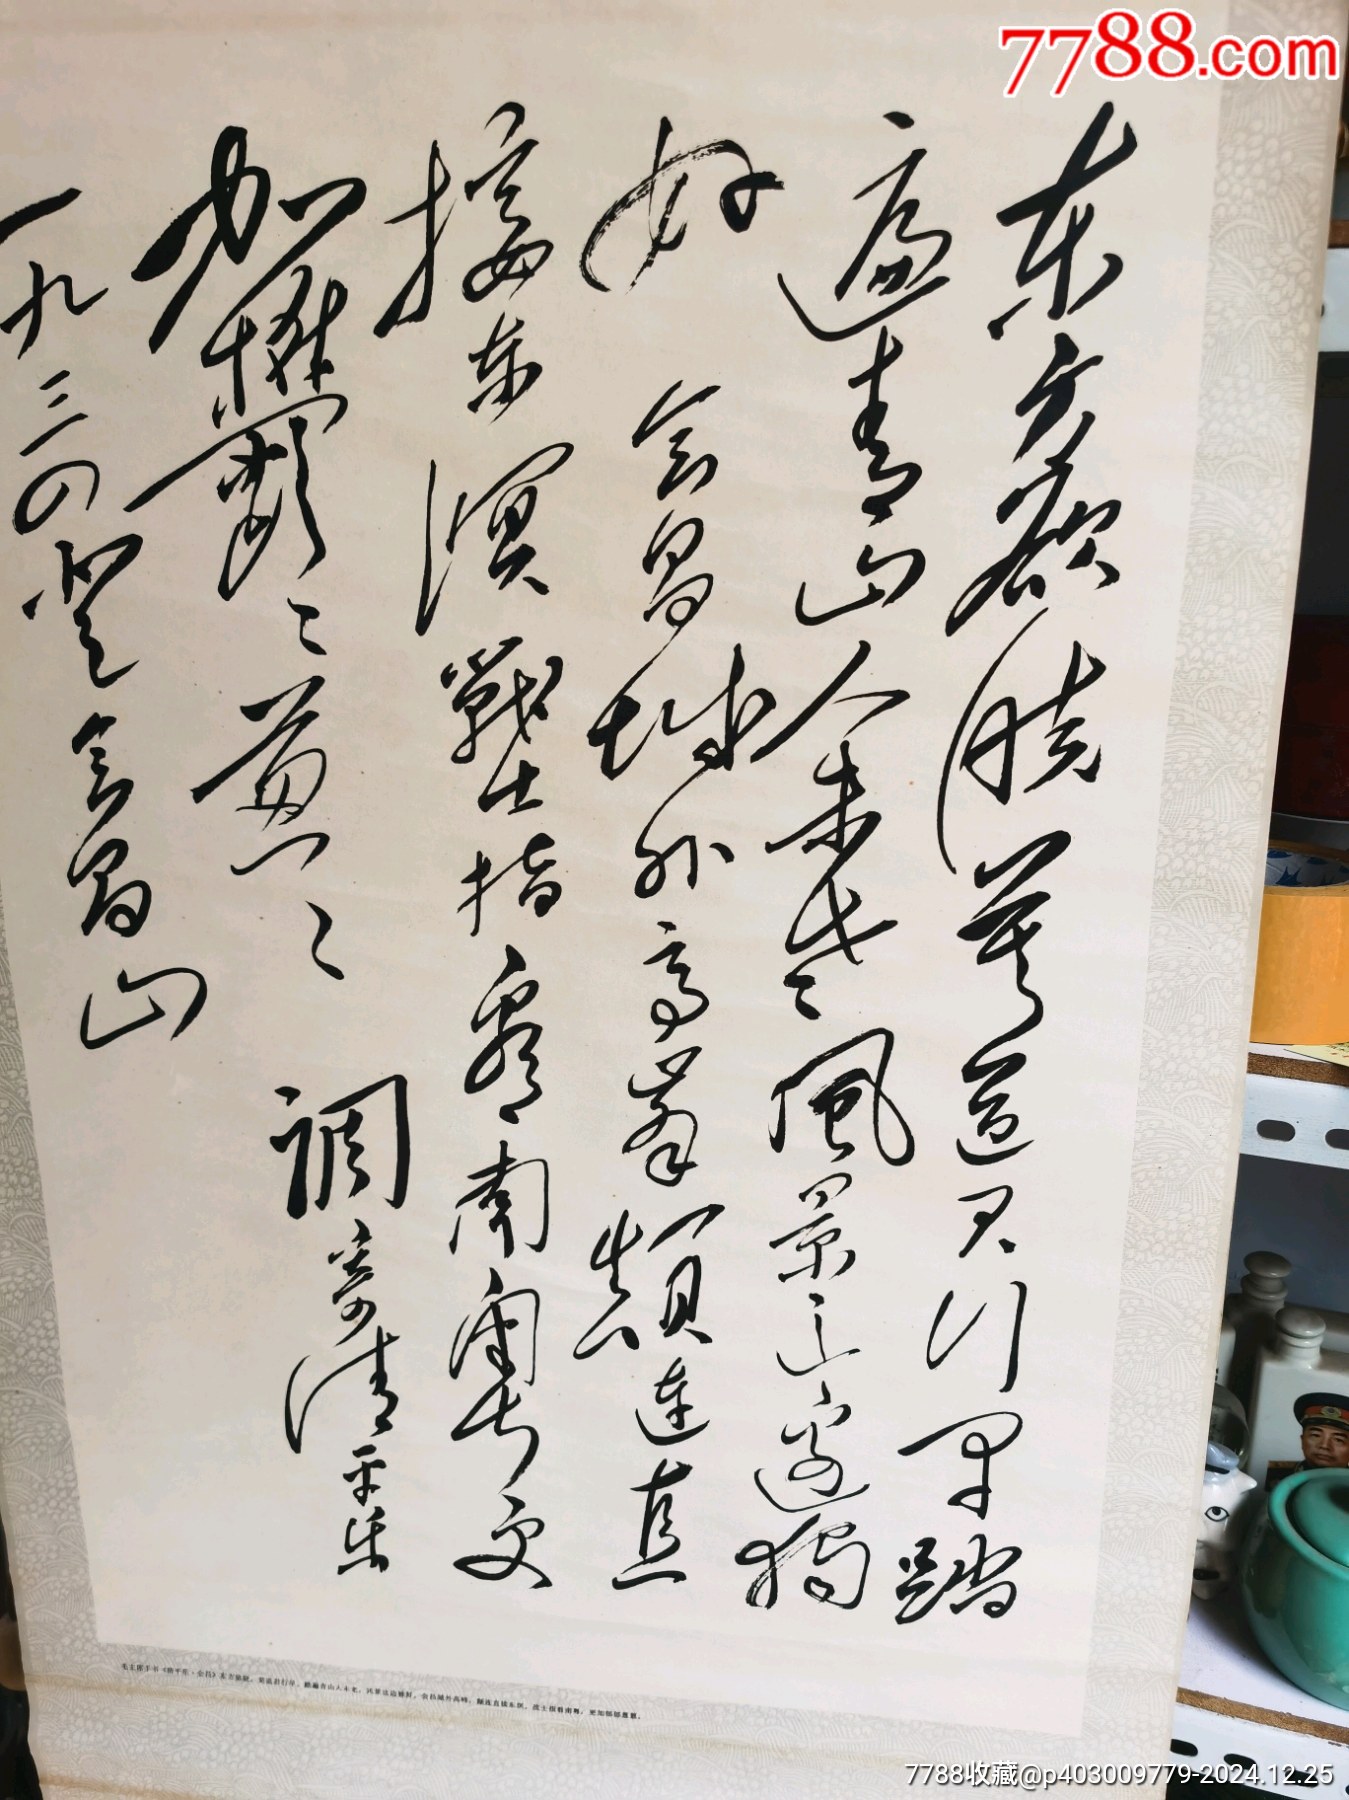 7788.com
东方欲晓莫道君行早踏
遍青山人未老风景这邊獨
好 会昌城外高峯顛连直
接东溟戰士指看南粤更
加欝々葱々 調寄清平乐
一九三四登会昌山
毛主席手书《清平乐·会昌》东方欲晓，莫道君行早。踏遍青山人未老，风景这边独好。会昌城外高峰，颠连直接东溟。战士指看南粤，更加郁郁葱葱。
7788收藏@p403009779-2024.12.25